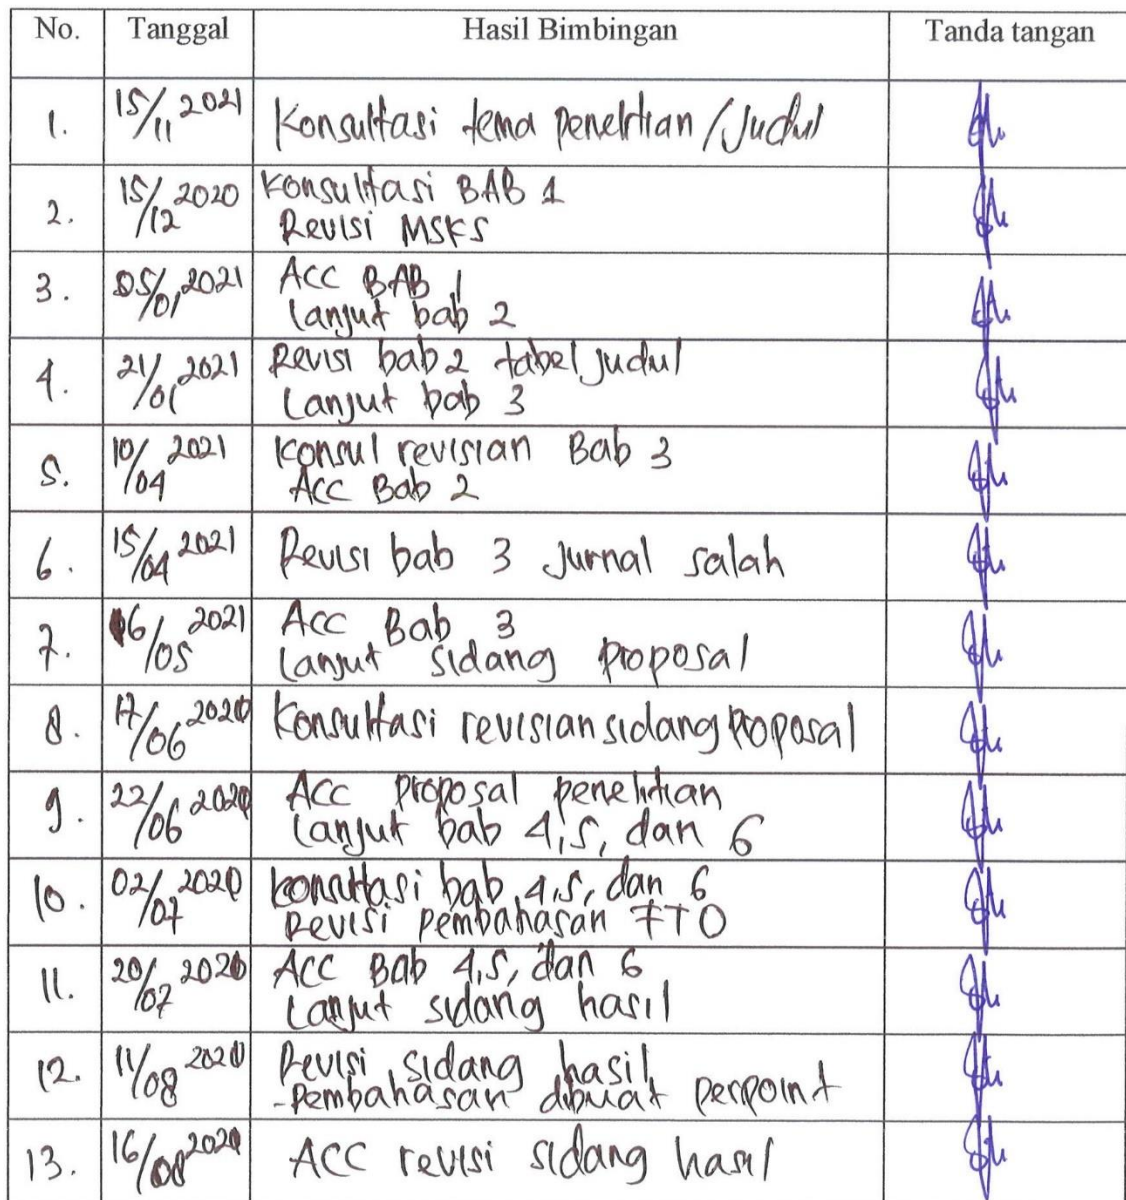 No. Tanggal Hasil Bimbingan Tanda tangan
1. 15/11 2021 Konsultasi tema penelitian / Judul
2. 15/12 2020 Konsultasi BAB 1
Revisi MSKS
3. 05/01 2021 ACC BAB 1
Lanjut bab 2
4. 21/01 2021 Revisi bab 2 tabel judul
Lanjut bab 3
5. 10/04 2021 Konsul revisian Bab 3
Acc Bab 2
6. 15/04 2021 Revisi bab 3 Jurnal salah
7. 06/05 2021 Acc Bab 3
Lanjut sidang proposal
8. 17/06 Konsultasi revisian sidang Proposal
9. 22/06 Acc proposal penelitian
Lanjut bab 4,5, dan 6
10. 02/07 konsultasi bab 4,5, dan 6
Revisi pembahasan FTO
11. 20/07 Acc Bab 4,5, dan 6
Lanjut sidang hasil
12. 11/08 Revisi sidang hasil
- Pembahasan dibuat perpoint
13. 16/08 ACC revisi sidang hasil